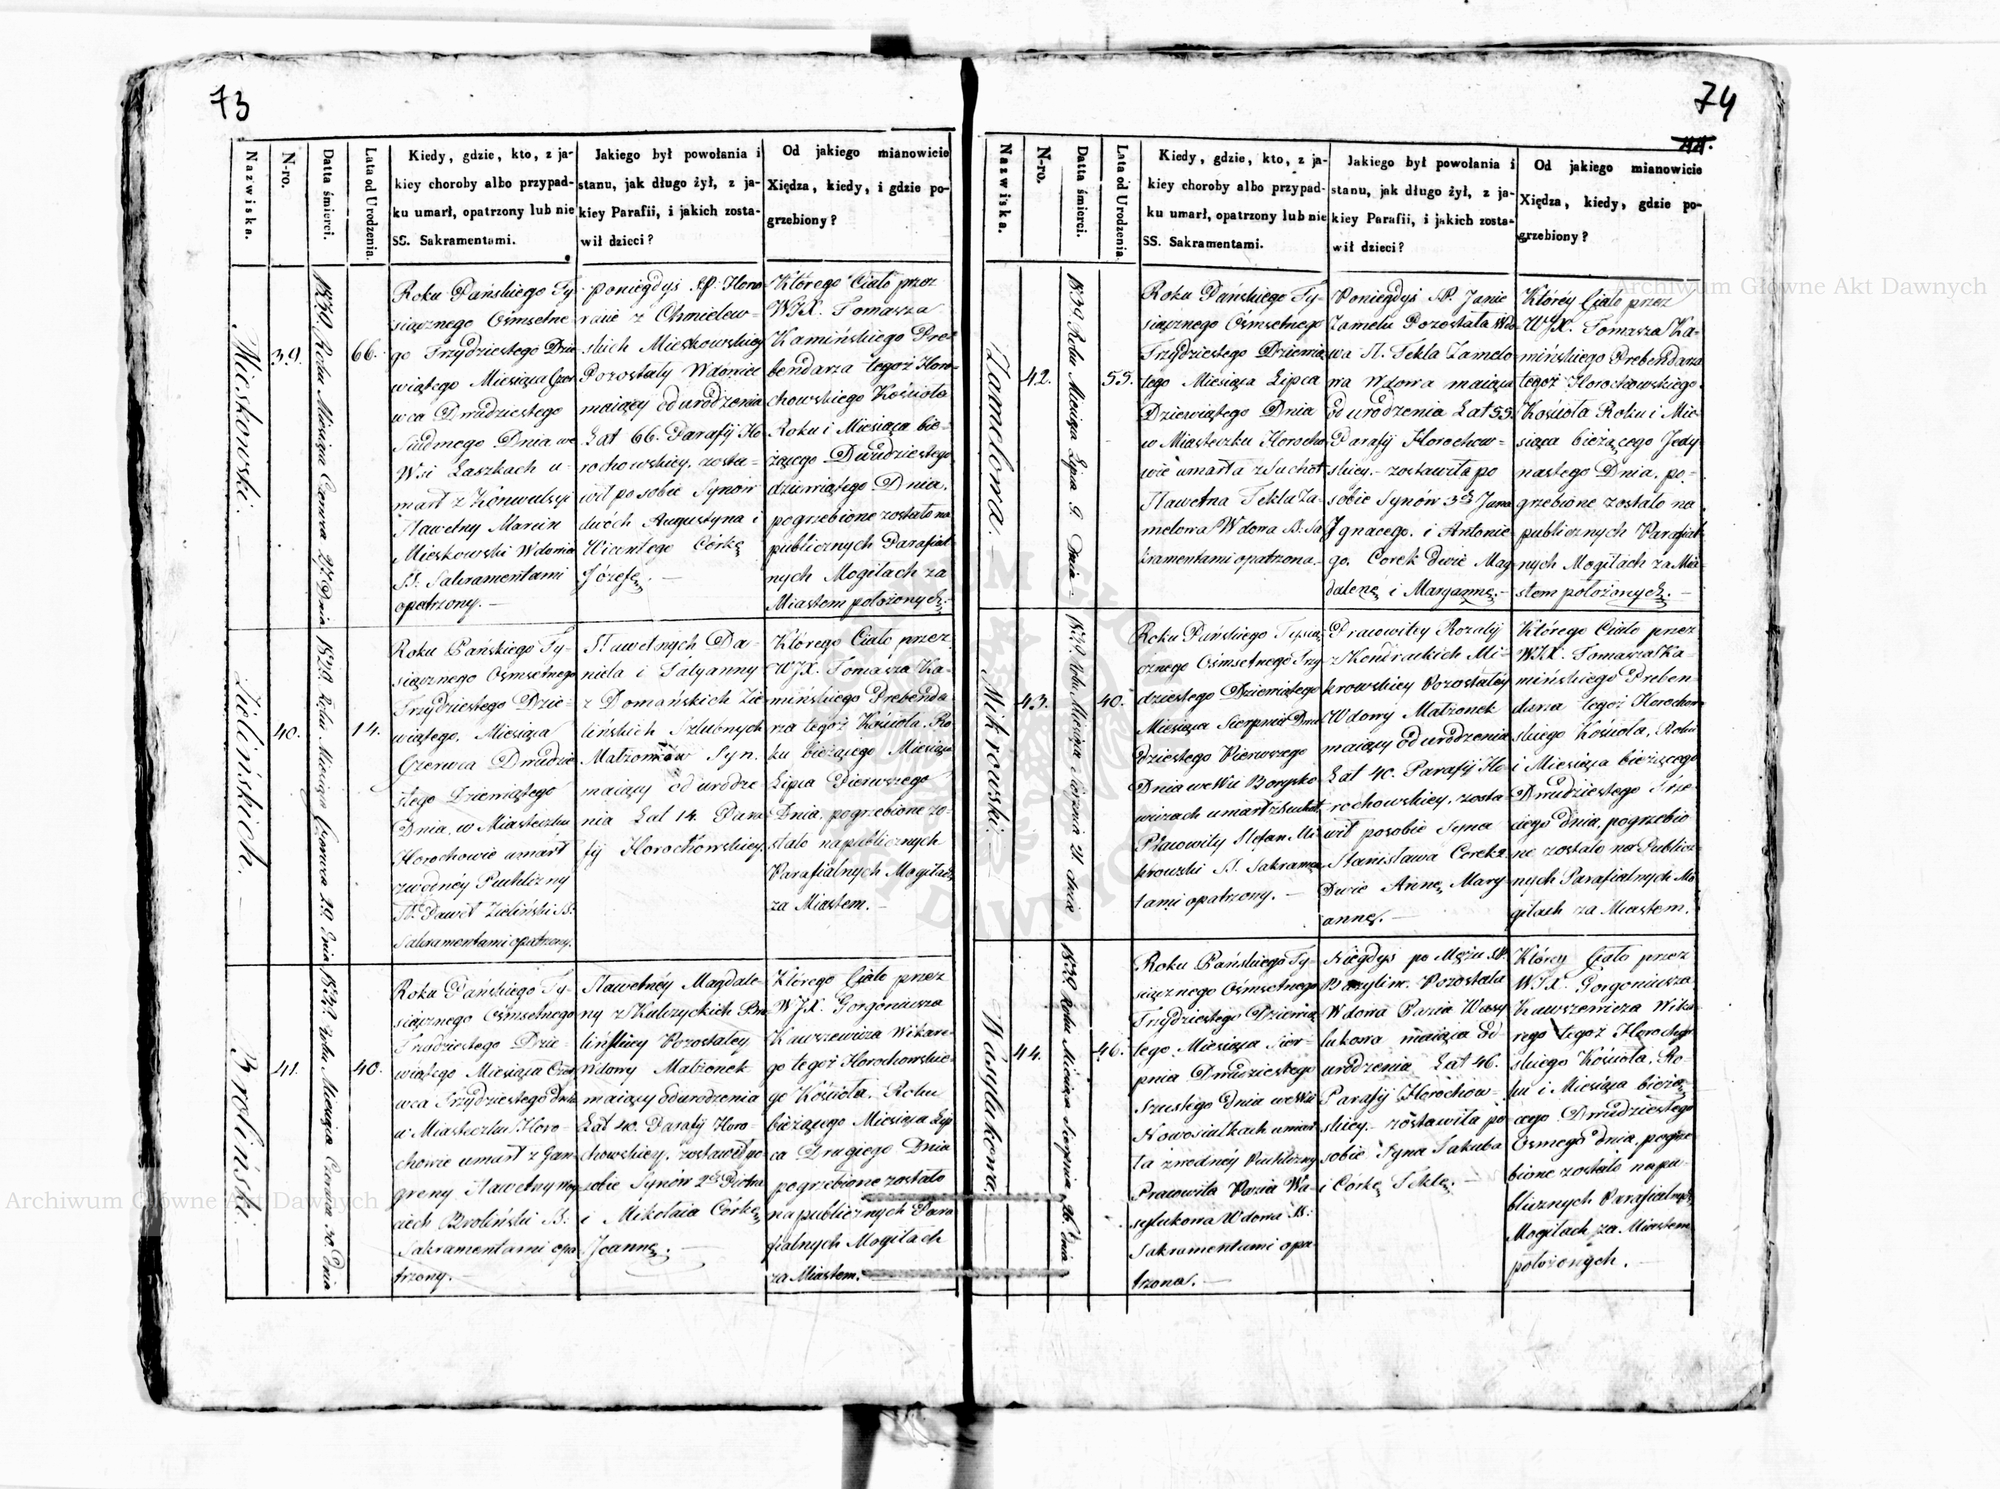 73
Nazwiska.
N-ro.
Datta śmierci.
Lata od Urodzenia.
Kiedy, gdzie, kto, z ja-
kiey choroby albo przypad-
ku umarł, opatrzony lub nie
SS. Sakramentami.
Jakiego był powołania i
stanu, jak długo żył, z ja-
kiey Parafii, i jakich zosta-
wił dzieci?
Od jakiego mianowicie
Xiędza, kiedy, i gdzie po-
grzebiony?
Mieskowski.
39.
1839 Roku Miesiąca Czerwca 27 Dnia
66.
Roku Pańskiego Ty-
siącznego Osmsetne
go Trzydziestego Dzie
wiątego Miesiąca Czer
wca Dwudziestego
Siódmego Dnia we
Wsi Łaszkach u-
marł z Konwulsyi
Sławetny Marcin
Mieskowski Wdowiec
SS. Sakramentami
opatrzony.
Poniegdyś ŚP.
z Chmielew-
skich Mieskowskiey
Pozostały Wdowiec
maiący od urodzenia
Lat 66. Parafij Ho
rochowskiey, zosta-
wił po sobie Synów
dwóch Augustyna i
Wicentego Córkę
Józefę.
Którego Ciało przez
WJX. Tomasza
Kamińskiego Pre
bendarza tegoż Horo-
chowskiego Kościoła
Roku i Miesiąca bie-
żącego Dwudziestego
dziewiątego Dnia,
pogrzebione zostało na
publicznych Parafial-
nych Mogiłach za
Miastem położonych.
Zielińskich.
40.
1839 Roku Miesiąca Czerwca 29 Dnia
14.
Roku Pańskiego Ty-
siącznego Ośmsetnego
Trzydziestego Dzie-
wiątego, Miesiąca
Czerwca Dwudzie
stego Dziewiątego
Dnia, w Miasteczku
Horochowie umarł
zwodnéy Puchlizny
Paweł Zieliński SS.
Sakramentami opatrzony.
Sławetnych Da-
niela i Tatyanny
z Domańskich Zie
lińskich Szlubnych
Małżonków Syn.
maiący od urodze
nia Lat 14. Para
fij Horochowskiey.
Którego Ciało przez
WJX. Tomasza Ka-
mińskiego Prebenda
rza tegoż Kościoła, Ro
ku bieżącego Miesiąca
Lipca Pierwszego
Dnia, pogrzebione zo-
stało na publicznych
Parafialnych Mogiłach
za Miastem.
Broliński.
41.
1839 Roku Miesiąca Czerwca 30 Dnia
40.
Roku Pańskiego Ty-
siącznego Ośmsetnego
Trzydziestego Dzie-
wiątego Miesiąca Czer
wca Trzydziestego Dnia
w Miasteczku Horo-
chowie umarł z Gan-
greny Sławetny Woy
ciech Broliński SS:
Sakramentami opa
trzony.
Sławetnéy Magdale-
ny z Kulczyckich Bro
lińskiey Pozostałey
Wdowy Małżonek
maiący od urodzenia
Lat 40. Parafij Horo-
chowskiey, zostawił po
sobie Synów 2ch Piotra
i Mikołaia Córkę
Joannę.
Którego Ciało przez
WJX. Gorgoniusza
Kawszewicza Wikare-
go tegoż Horochowskie-
go Kościoła, Roku
bieżącego Miesiąca Lip
ca Drugiego Dnia
pogrzebione zostało
na publicznych Para
fialnych Mogiłach
za Miastem.
74
Nazwiska.
N-ro.
Datta śmierci.
Lata od Urodzenia.
Kiedy, gdzie, kto, z ja-
kiey choroby albo przypad-
ku umarł, opatrzony lub nie
SS. Sakramentami.
Jakiego był powołania i
stanu, jak długo żył, z ja-
kiey Parafii, i jakich zosta-
wił dzieci?
Od jakiego mianowicie
Xiędza, kiedy, gdzie po-
grzebiony?
Zamelowa.
42.
1839 Roku Miesiąca Lipca 9 Dnia
55.
Roku Pańskiego Ty-
siącznego Ośmsetnego
Trzydziestego Dziewią
tego Miesiąca Lipca
Dziewiątego Dnia
w Miasteczku Horocho
wie umarła z Suchot
Sławetna Tekla Za-
melowa Wdowa SS. Sa
kramentami opatrzona.
Poniegdyś ŚP. Janie
Zamelu Pozostała Wdo
wa Tekla Zamelo
wa Wdowa maiąca
od urodzenia Lat 55.
Parafij Horochow-
skiey. zostawiła po
sobie Synów 3ch Jana
Ignacego, i Antonie
go, Corek dwie Mag
dalenę i Maryannę.
Któréy Ciało przez
WJX. Tomasza Ka-
mińskiego Prebendarza
tegoż Horochowskiego
Kościoła Roku i Mie
siąca bieżącego Jedy
nastego Dnia, po-
grzebione zostało na
publicznych Parafial
nych Mogiłach za Mia-
stem położonych.
Mikrowski.
43.
1839 Roku Miesiąca Sierpnia 21 dnia
40.
Roku Pańskiego Tysią
cznego Ośmsetnego Trzy
dziestego Dziewiątego
Miesiąca Sierpnia Dwu
dziestego Pierwszego
Dnia we Wsi Borysko
wiczach umarł z Suchot
Pracowity Stefan Mi
krowski SS. Sakramen
tami opatrzony.
Pracowitey Rozalij
z Kondrackich Mi
krowskiey Pozostałey
Wdowy Małżonek
maiący od urodzenia
Lat 40. Parafij Ho
rochowskiey, zosta
wił po sobie Syna
Stanisława Corek
Dwie Annę, Mary
annę.
Którego Ciało przez
WJX. Tomasza Ka-
mińskiego Preben-
darza tegoż Horochow
skiego Kościoła, Roku
i Miesiąca bieżącego
Dwudziestego Trze-
ciego dnia, pogrzebio
ne zostało na Publicz
nych Parafialnych Mo
giłach za Miastem.
Wasylukowa.
44.
1839 Roku Miesiąca Sierpnia 26 dnia
46.
Roku Pańskiego Ty-
siącznego Ośmsetnego
Trzydziestego Dziewią
tego Miesiąca Sier-
pnia Dwudziestego
Szustego Dnia we Wsi
Nowosiołkach umar
ła zwodnéy Puchlizny
Pracowita Wa-
sylukowa Wdowa SS:
Sakramentami opa-
trzona.
Niegdyś po Mężu ŚP.
Bazylim Pozostała
Wdowa Wasy
lukowa maiąca od
urodzenia Lat 46.
Parafij Horochow-
skiey, zostawiła po
sobie Syna Jakuba
i Córkę Teklę.
Któréy Ciało przez
WJX. Gorgoniusza
Kawszewicza Wika
rego tegoż Horochow
skiego Kościoła, Ro
ku i Miesiąca bieżą
cego Dwudziestego
Osmego dnia, pogrze
bione zostało na pu-
blicznych Parafialnych
Mogiłach za Miastem
położonych.
Archiwum Główne Akt Dawnych
Archiwum Główne Akt Dawnych